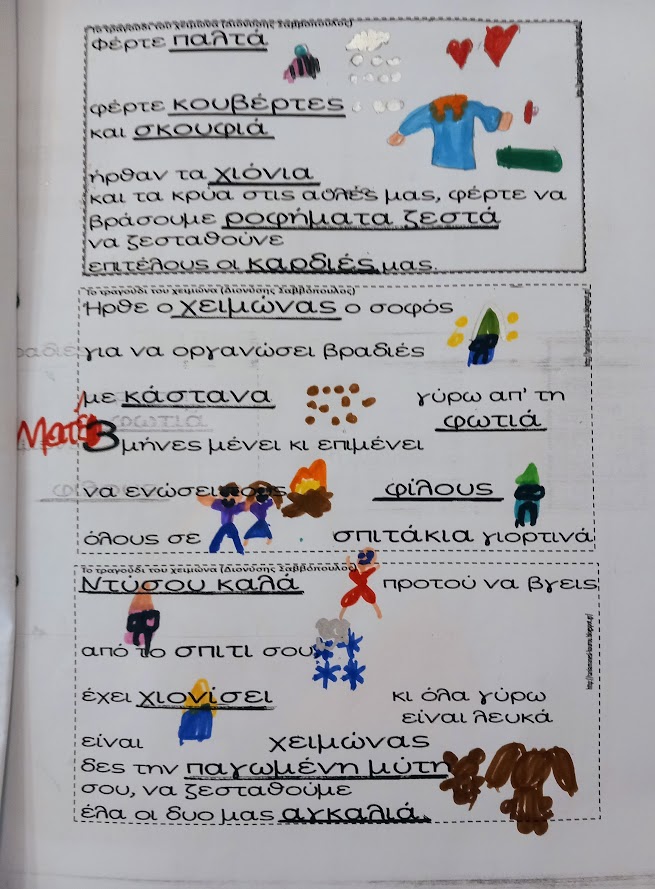 Το τραγούδι του χειμώνα (Διονύσης Σαββόπουλος)
φέρτε παλτά
φέρτε κουβέρτες
και σκουφιά
ήρθαν τα χιόνια
και τα κρύα στις αυλές μας, φέρτε να
βράσουμε ροφήματα ζεστά
να ζεσταθούνε
επιτέλους οι καρδιές μας.
Το τραγούδι του χειμώνα (Διονύσης Σαββόπουλος)
Ήρθε ο χειμώνας ο σοφός
για να οργανώσει βραδιές
με κάστανα γύρω απ' τη
φωτιά
3 μήνες μένει κι επιμένει
να ενώσει τους φίλους
όλους σε σπιτάκια γιορτινά
Το τραγούδι του χειμώνα (Διονύσης Σαββόπουλος)
Ντύσου καλά προτού να βγεις
από το σπιτι σου
έχει χιονίσει κι όλα γύρω
είναι λευκά
είναι χειμώνας
δες την παγωμένη μύτη
σου, να ζεσταθούμε
έλα οι δυο μας αγκαλιά.